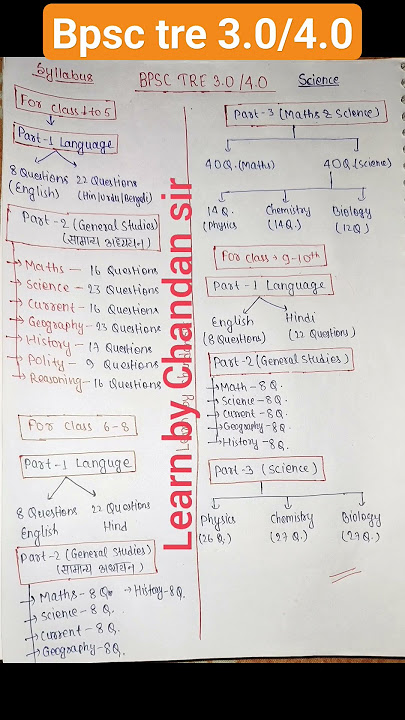 Bpsc tre 3.0/4.0
Syllabus
BPSC TRE 3.0/4.0
Science
For class 1 to 5
Part-1 Language
8 Questions 22 Questions
(English) (Hin/urdu/Bengali)
Part-2 (General Studies)
(सामान्य अध्ययन)
Maths — 16 Questions
Science — 23 Questions
Current — 16 Questions
Geography — 23 Questions
History — 17 Questions
Polity — 9 Questions
Reasoning — 16 Questions
For class 6-8
Part-1 Languge
8 Questions 22 Questions
English Hind
Part-2 (General Studies)
(सामान्य अध्ययन)
Maths - 8 Q. → History - 8 Q.
Science - 8 Q.
Current - 8 Q.
Geography - 8 Q.
Part-3 (Maths & Science)
40 Q. (Maths) 40 Q. (Science)
14 Q. Chemistry Biology
(Physics (14 Q.) (12 Q)
For class → 9-10th
Part-1 Language
English Hindi
(8 Questions) (22 Questions)
Part-2 (General Studies)
Math - 8 Q.
Science - 8 Q.
Current - 8 Q.
Geography - 8 Q.
History - 8 Q.
Part-3 (Science)
Physics Chemistry Biology
(26 Q.) (27 Q.) (27 Q.)
Learn by Chandan sir